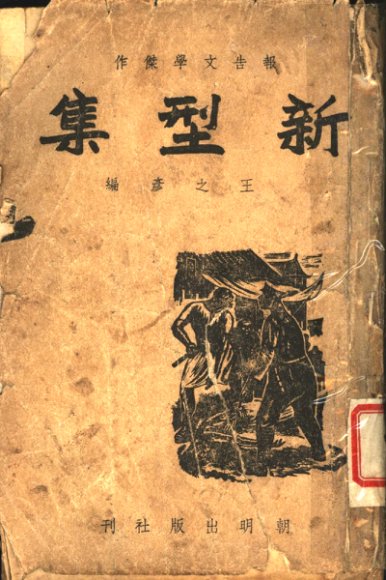 報告文學傑作
新型集
王之彥編
朝明出版社刊